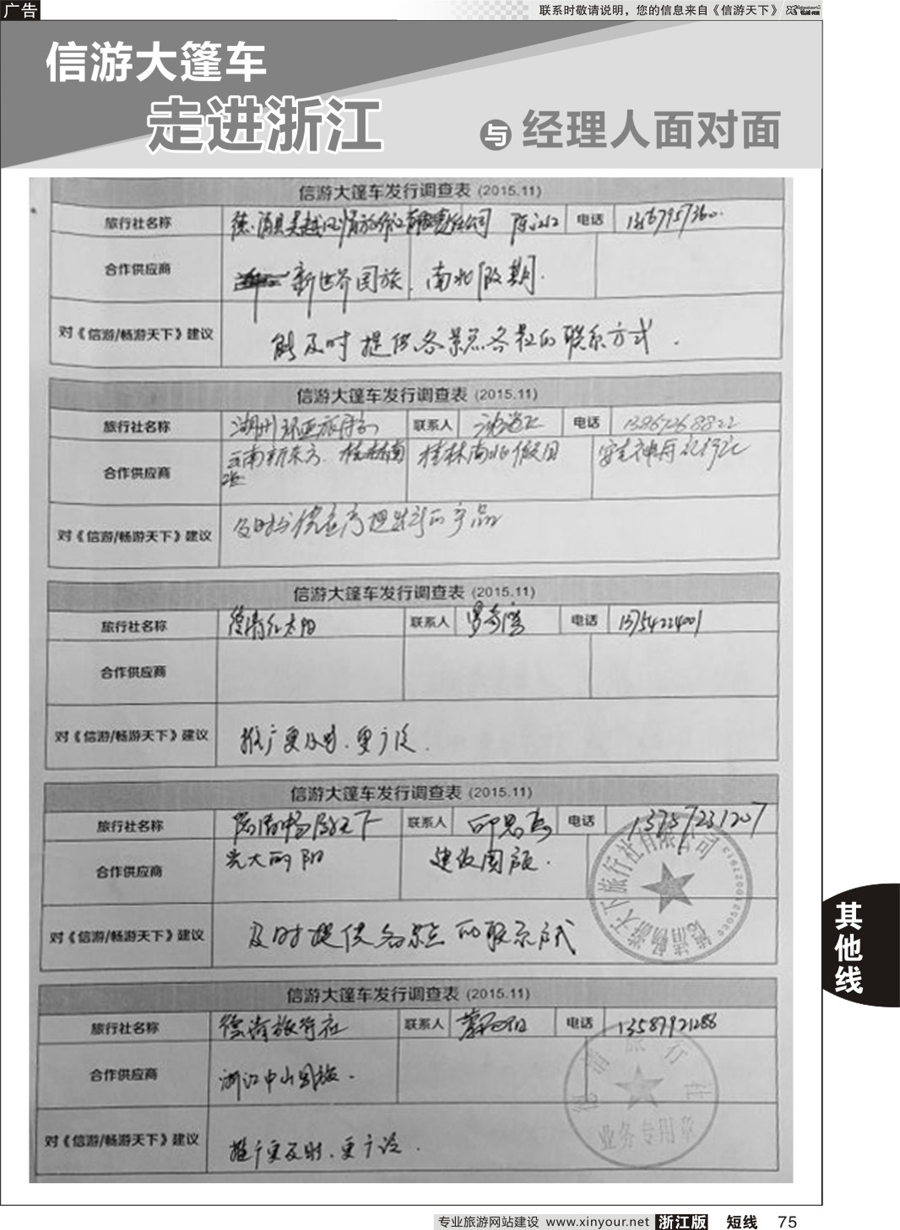 广告
联系时敬请说明，您的信息来自《信游天下》
信游大篷车
走进浙江
与 经理人面对面
信游大篷车发行调查表 (2015.11)
旅行社名称 电话
合作供应商 新世界国旅. 南北假期.
对《信游/畅游天下》建议 能及时提供各景点各社的联系方式.
信游大篷车发行调查表 (2015.11)
旅行社名称 湖州环亚旅行社 联系人 电话 13867268822
合作供应商 云南新东方. 桂林南北 桂林南北假日
对《信游/畅游天下》建议
信游大篷车发行调查表 (2015.11)
旅行社名称 德清红太阳 联系人 电话 13754224001
合作供应商
对《信游/畅游天下》建议 推广更及时、更广泛.
信游大篷车发行调查表 (2015.11)
旅行社名称 德清畅游天下 联系人 电话 13757231207
合作供应商 光大 建设国旅.
对《信游/畅游天下》建议 及时提供各景点的联系方式
德清畅游天下旅行社有限公司
信游大篷车发行调查表 (2015.11)
旅行社名称 德清旅行社 联系人 电话 13587921286
合作供应商 浙江中山国旅.
对《信游/畅游天下》建议 推广更及时、更广泛.
德清旅行社
业务专用章
其他线
专业旅游网站建设 www.xinyour.net 浙江版 短线 75